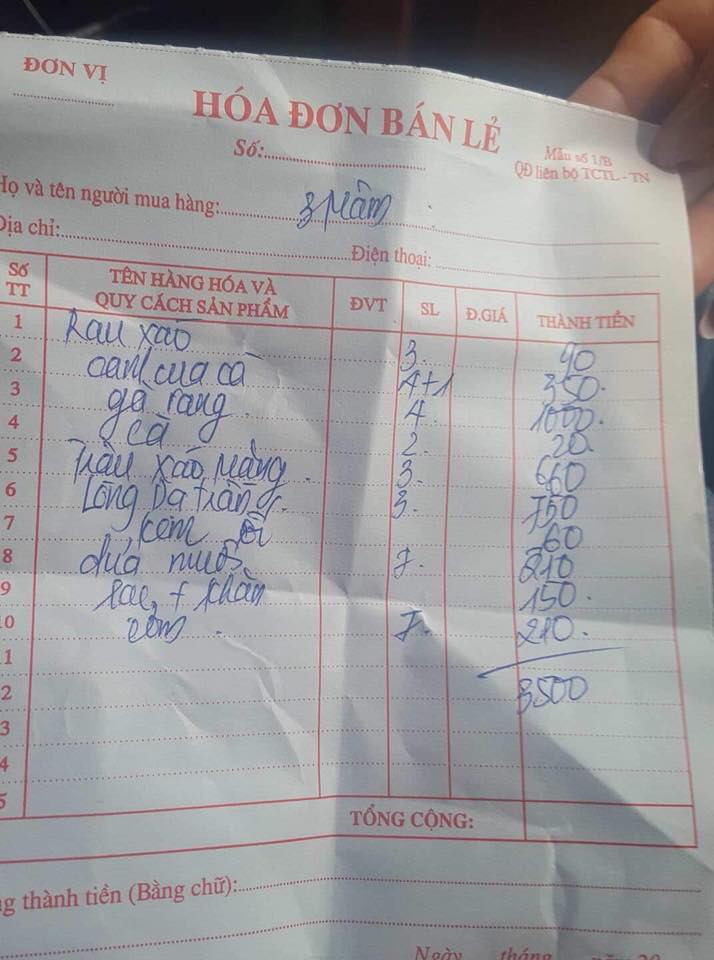 ĐƠN VỊ
HÓA ĐƠN BÁN LẺ
Số:
Mẫu số 1/B
QĐ liên bộ TCTL - TN
Họ và tên người mua hàng: 3 Mâm
Địa chỉ: Điện thoại:
Số TT TÊN HÀNG HÓA VÀ QUY CÁCH SẢN PHẨM ĐVT SL Đ.GIÁ THÀNH TIỀN
1 Rau xào 3. 90
2 canh cua cà 4+1 350.
3 gà rang 4. 1000.
4 cà 2. 20
5 Trâu xào măng. 3. 660
6 Lòng Dạ tràng. 3. 750
7 kem 60
8 dứa nước 7. 210
9 lạc + khăn 150.
0 cơm. 7. 210.
1 3500
2
3
4
5
TỔNG CỘNG:
ng thành tiền (Bằng chữ):
Ngày tháng năm 20